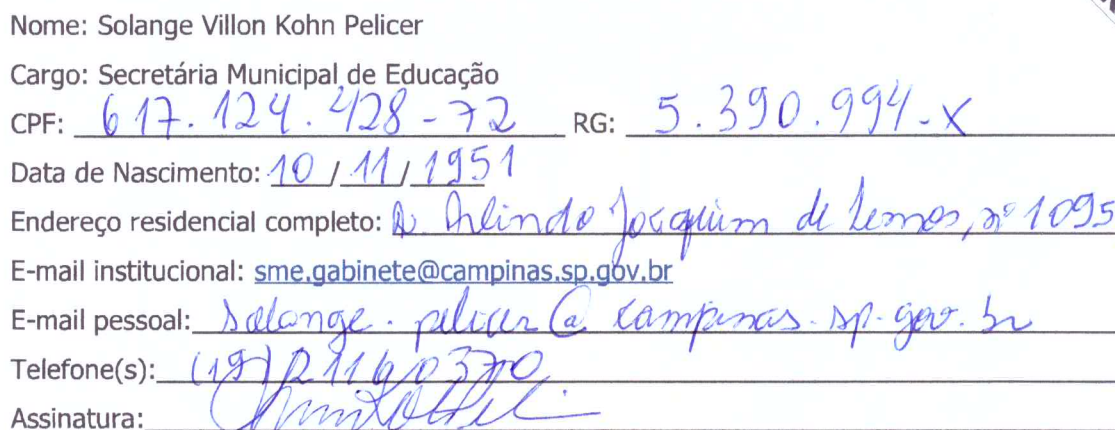 Nome: Solange Villon Kohn Pelicer
Cargo: Secretária Municipal de Educação
CPF: 617.124.428-72 RG: 5.390.994-X
Data de Nascimento: 10/11/1951
Endereço residencial completo: R. Arlindo Joaquim de Lemos, nº 1095
E-mail institucional: sme.gabinete@campinas.sp.gov.br
E-mail pessoal: solange.pelicer@campinas.sp.gov.br
Telefone(s): (19) 21160370
Assinatura: